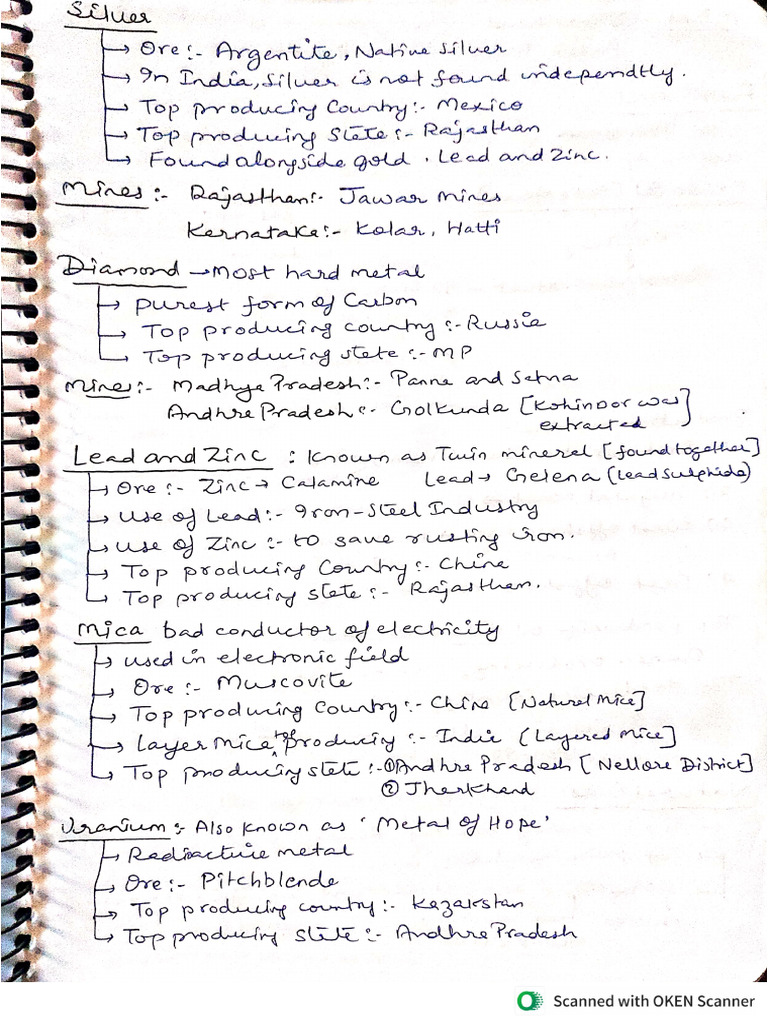 Silver
→ Ore :- Argentite, Native silver
→ In India, silver is not found independtly.
→ Top producing Country :- Mexico
→ Top producing State :- Rajasthan
→ Found alongside gold . Lead and Zinc.
Mines :- Rajasthan :- Jawar Mines
Kernataka :- Kolar, Hatti
Diamond → Most hard metal
→ Purest form of Carbon
→ Top producing country :- Russia
→ Top producing state :- MP
Mine :- Madhya Pradesh :- Panna and Satna
Andhra Pradesh :- Golkunda [Kohinoor was
extracted]
Lead and Zinc : Known as Twin mineral [found together]
→ Ore :- Zinc → Calamine Lead → Gelena (Lead sulphide)
→ Use of Lead :- Iron-Steel Industry
→ Use of Zinc :- to save rusting iron.
→ Top producing Country :- China
→ Top producing state :- Rajasthan.
Mica bad conductor of electricity
→ used in electronic field
→ Ore :- Muscovite
→ Top producing Country :- China [Natural Mica]
→ Layer Mica top producing :- India [Layered Mica]
→ Top producing state :- ① Andhra Pradesh [Nellore District]
② Jharkhand
Uranium :- Also known as 'Metal of Hope'
→ Radioactive metal
→ Ore :- Pitchblende
→ Top producing country :- Kazakstan
→ Top producing state :- Andhra Pradesh
Scanned with OKEN Scanner